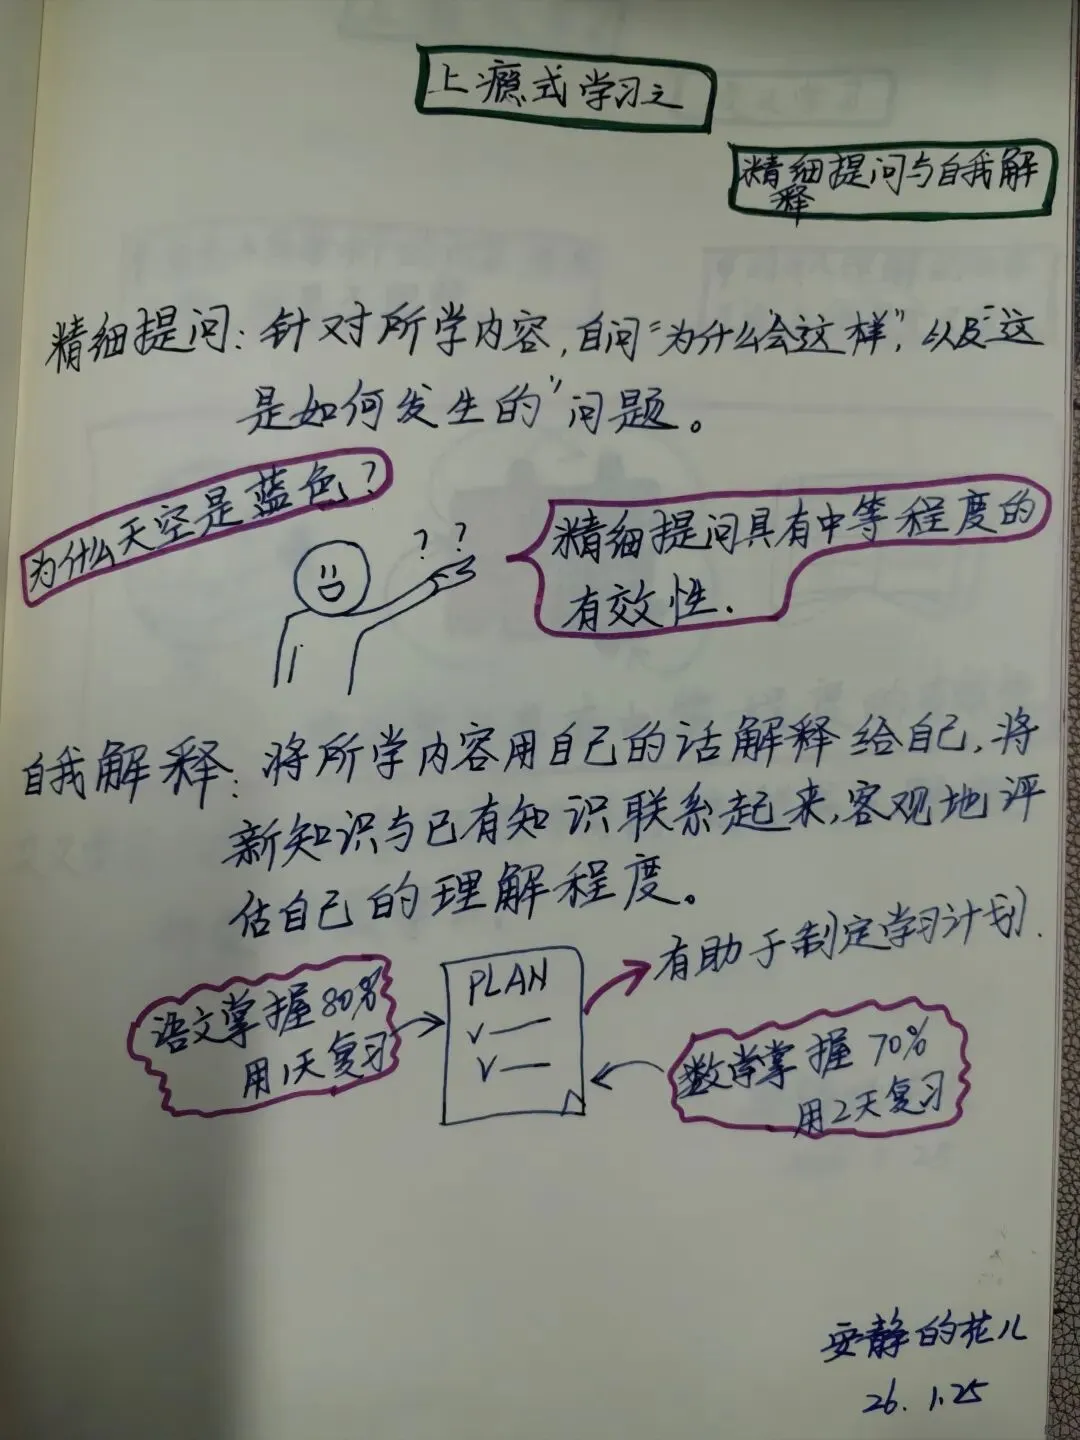 上瘾式学习之
精细提问与自我解
释
精细提问：针对所学内容，自问“为什么会这样”，以及“这
是如何发生的”问题。
为什么天空是蓝色？
? ?
精细提问具有中等程度的
有效性.
自我解释：将所学内容用自己的话解释给自己，将
新知识与已有知识联系起来，客观地评
估自己的理解程度。
有助于制定学习计划.
语文掌握80%
用1天复习
PLAN
数学掌握70%
用2天复习
安静的花儿
26.1.25